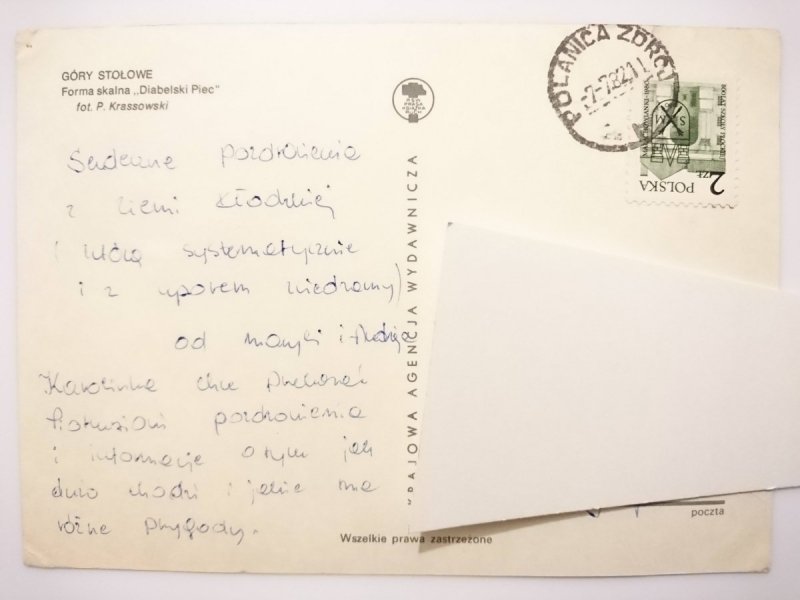 GÓRY STOŁOWE
Forma skalna „Diabelski Piec”
fot. P. Krassowski
POLANICA ZDRÓJ
-7-7.82.11
2 ZŁ
POLSKA
Serdeczne pozdrowienia
z Ziemi Kłodzkiej
(którą systematycznie
i z uporem zwiedzamy)
od Marysi i
Karolinka chce przekazać
pozdrowienia
i informacje o tym jak
dużo chodzi i jakie ma
różne przygody.
KRAJOWA AGENCJA WYDAWNICZA
Wszelkie prawa zastrzeżone
poczta